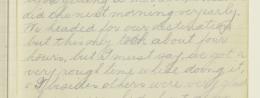 did the next morning very early.
We headed for our destination
but this only took about four
hours, but I must say, we got a
very rough time while doing it,
besides others were very